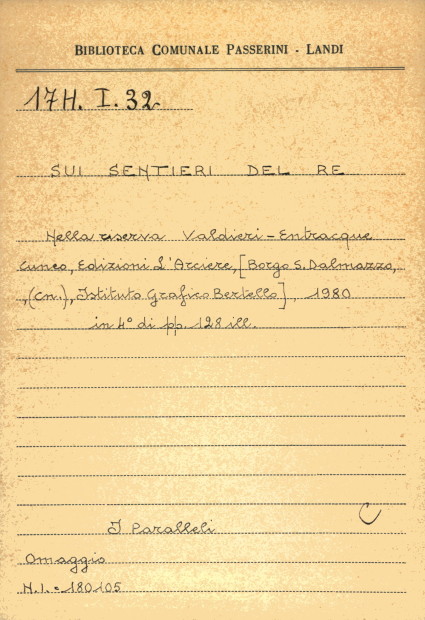 BIBLIOTECA COMUNALE PASSERINI - LANDI
17H. I. 32
SUI SENTIERI DEL RE
Nella riserva Valdieri - Entracque
Cuneo, Edizioni L'Arciere, [Borgo S. Dalmazzo,
,(Cn.), Istituto Grafico Bertello], 1980
in 4° di pp. 128 ill.
C
I Paralleli
Omaggio
N.I. = 180105